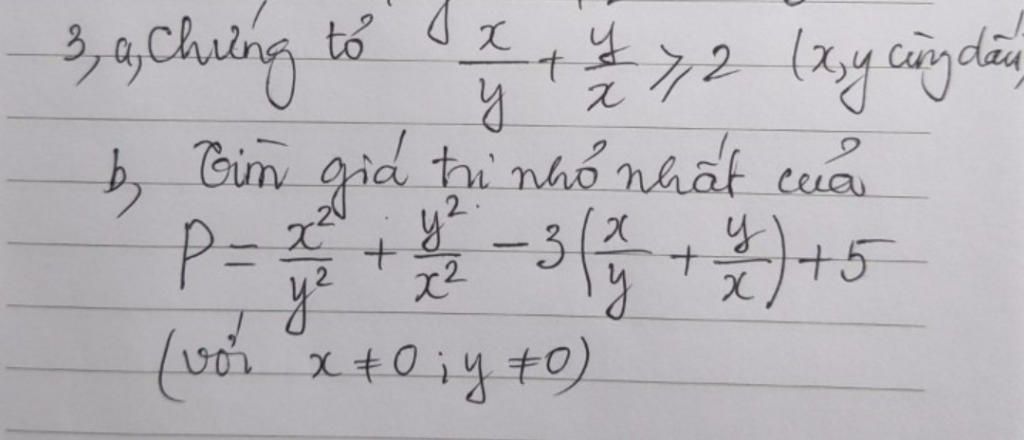 3, a, Chứng tỏ x/y + y/x ⩾ 2 (x, y cùng dấu)
b, Tìm giá trị nhỏ nhất của
P = x²/y² + y²/x² - 3(x/y + y/x) + 5
(với x ≠ 0 ; y ≠ 0)